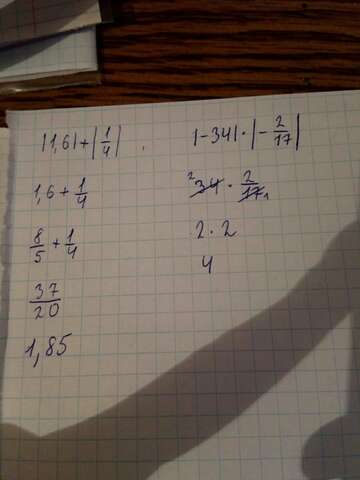 |1,6|+|1/4|
1,6 + 1/4
8/5 + 1/4
37/20
1,85
|-34|·|-2/17|
²34 · 2/17₁
2·2
4